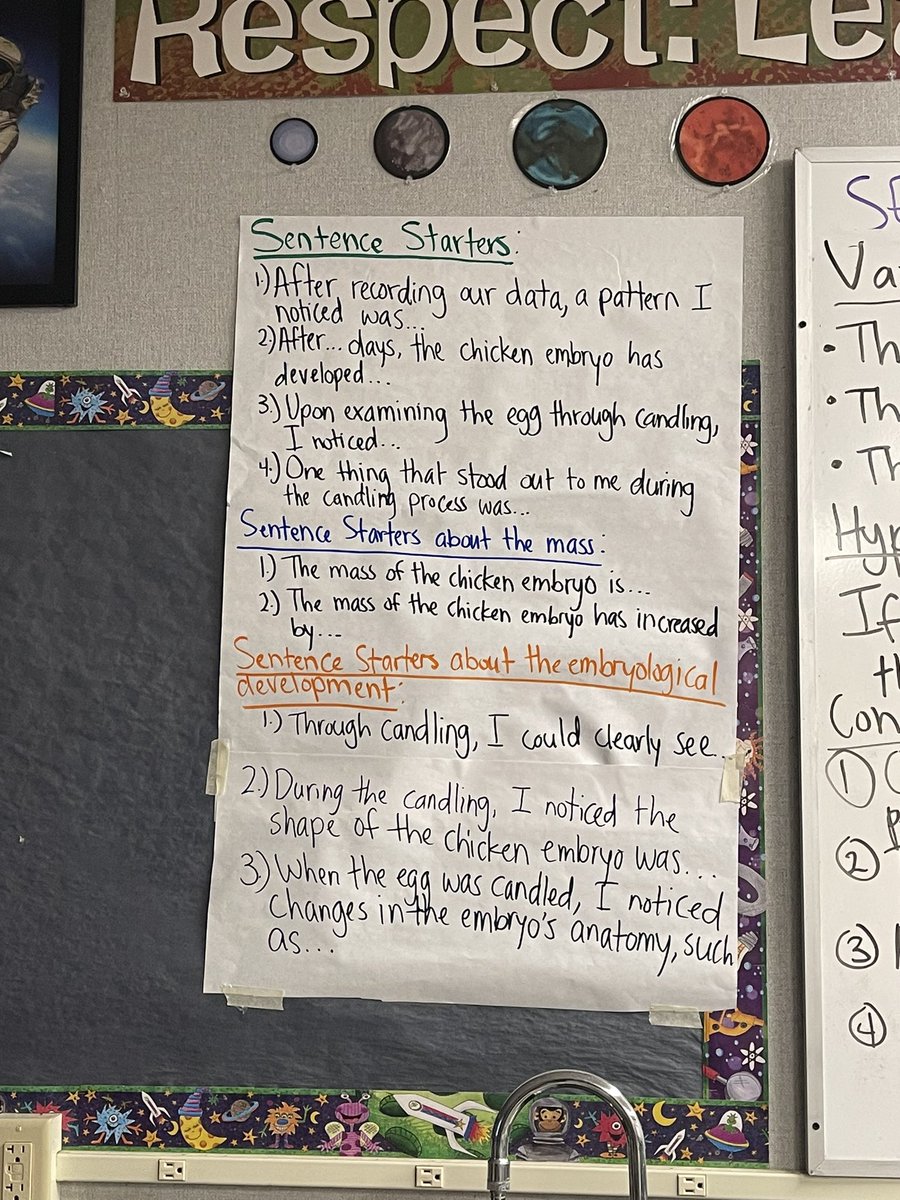 Respect:
Sentence Starters:
1.) After recording our data, a pattern I
noticed was...
2.) After... days, the chicken embryo has
developed...
3.) Upon examining the egg through candling,
I noticed...
4.) One thing that stood out to me during
the candling process was...
Sentence Starters about the mass:
1.) The mass of the chicken embryo is...
2.) The mass of the chicken embryo has increased
by...
Sentence Starters about the embryological
development:
1.) Through candling, I could clearly see...
2.) During the candling, I noticed the
shape of the chicken embryo was...
3.) When the egg was candled, I noticed
changes in the embryo's anatomy, such
as...
If
①
②
③
④